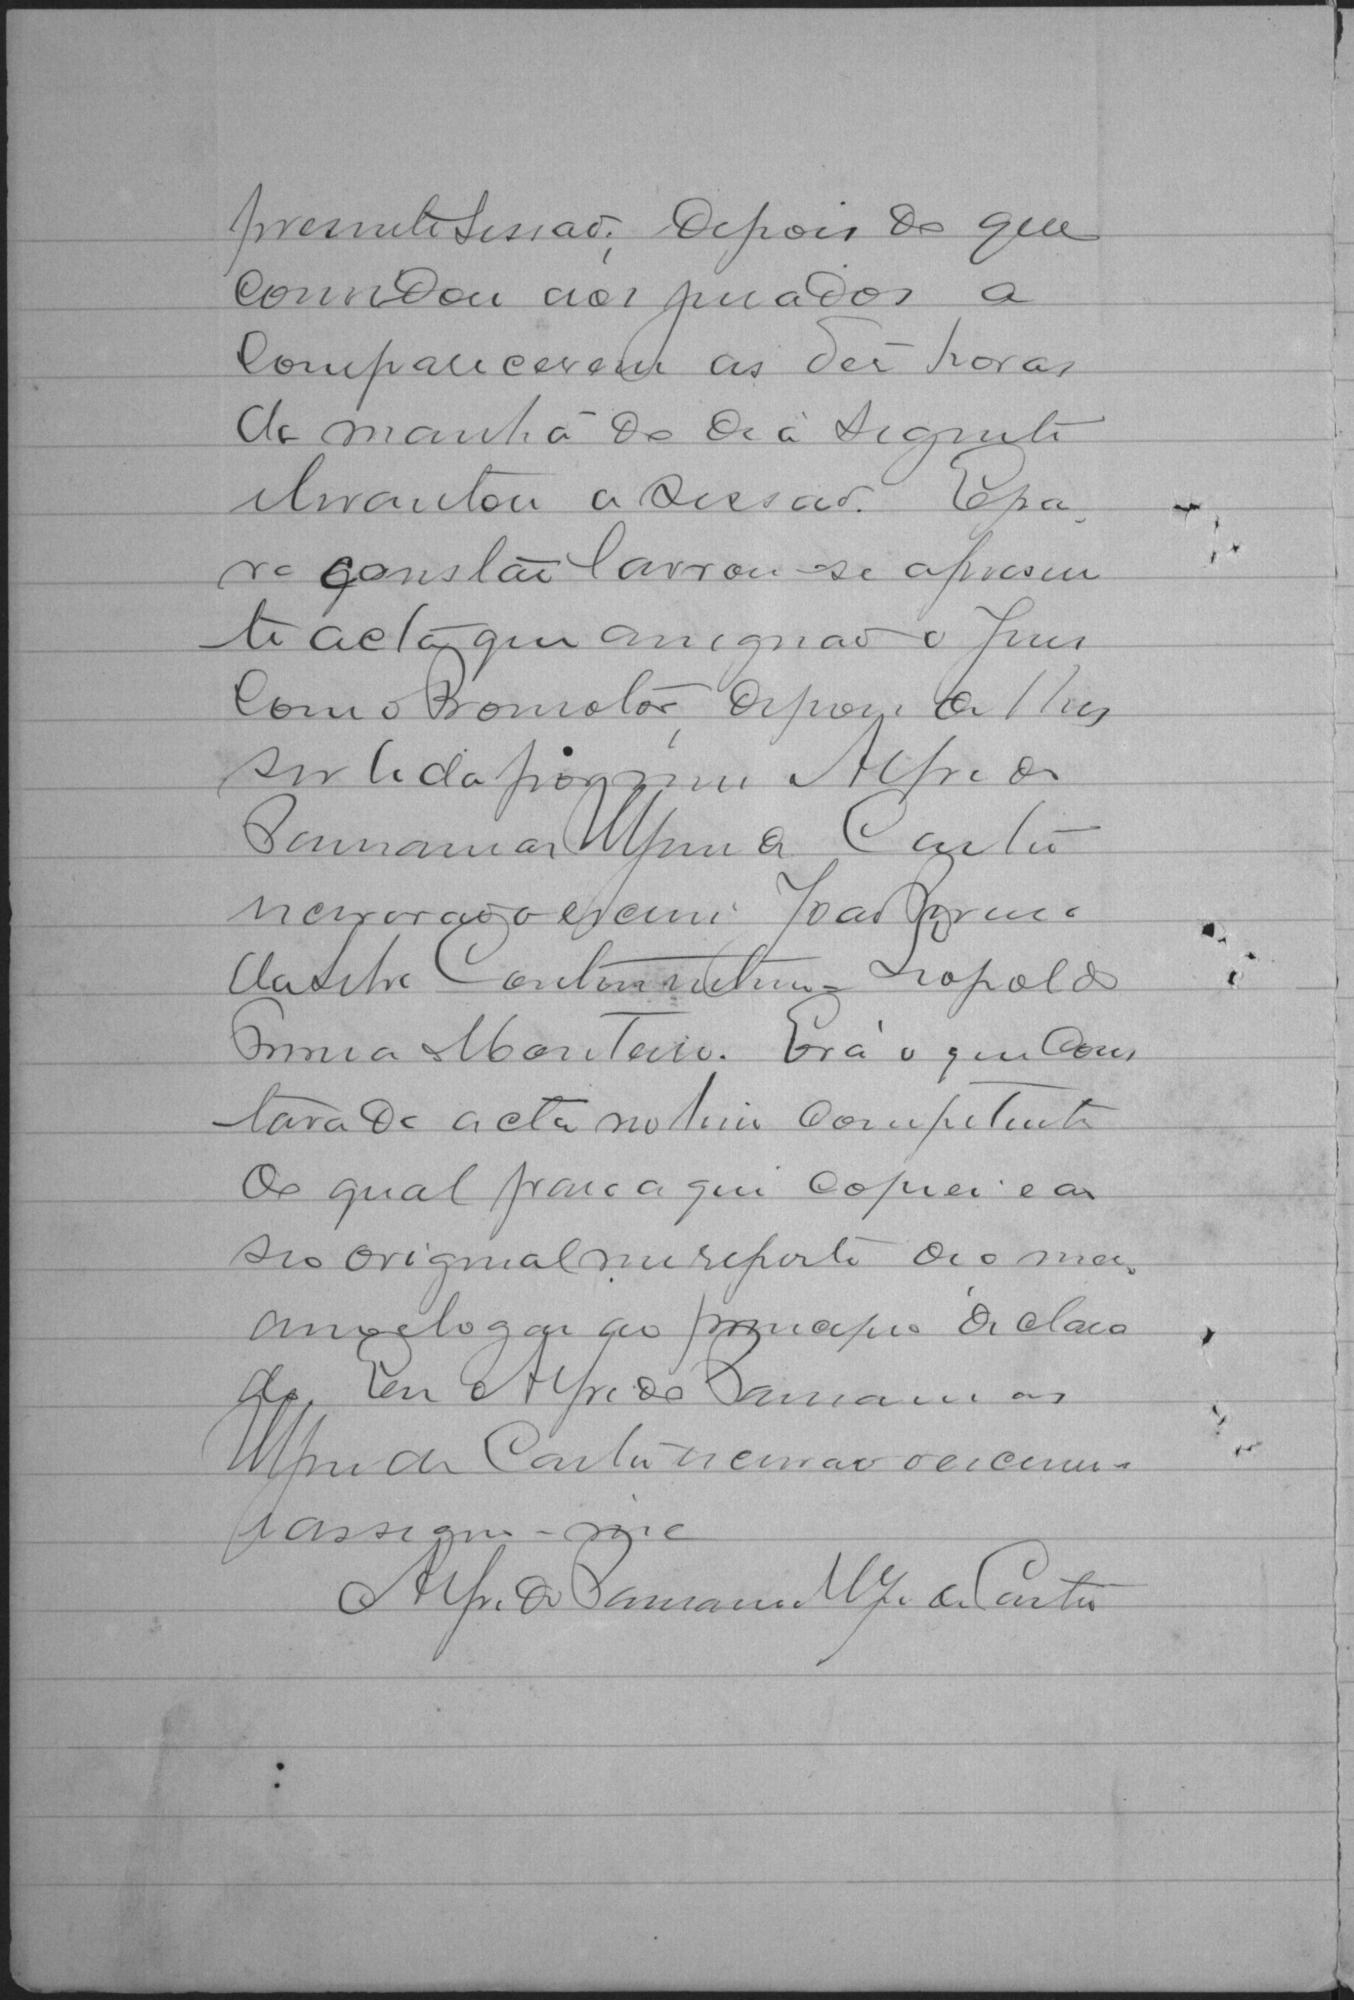 presente sessão; depois do que
convidou aos jurados a
comparecerem as dez horas
da manhã do dia seguinte
elevantou a sessão. E pa
ra constar lavrou-se apresen
te acta que assignão o Juiz
com o Promotor, depois de lhes
ser lida por mim Alfredo
de Castro
escrivão o escrevi João
da Silva Leopoldo
Monteiro. Era o que cons
tava da acta no livro competente
do qual para aqui copiei e ao
seo original me reporto deo meo
ao principio declara
do. Eu Alfredo
de Castro escrivão o escrevi
e assigno-me
Alfredo de Castro